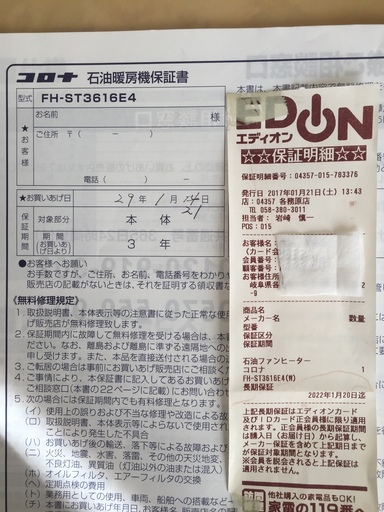 コロナ 石油暖房機保証書
型式 FH-ST3616E4
★お客様
お名前 様
ご住所 〒( － )
電話( )
★お買いあげ日 29年 1月 21
保証期間
対象部分 本体
期間(お買いあげ日より) 3年
★お客様へお願い
お手数ですが、ご住所、お名前、電話番号をわかりや
売店の記載がないときは、それを証明する領収書な
〈無料修理規定〉
1. 取扱説明書、本体表示等の注意書に従った正常な使
げ販売店が無料修理致します。
2. 保証期間内に故障して無料修理を受ける場合は、
ださい。なお、離島及び離島に準ずる遠隔地への
申し受けます。また、本品を直接送付される場合
3. ご転居の場合は事前にお買いあげ販売店にご相談
4. ご事情により、本保証書に記入してあるお買いあげ
ご相談窓口(本書の22ページ)にお問い合わ
5. 次の場合には保証期間内でも有料修理になります。
(イ) 使用上の誤りおよび不当な修理や改造による故
(ロ) 取扱説明書、本体表示等によらないで使用され
ことにより発生した不具合
(ハ) お買いあげ後の輸送、落下等による故障および
(ニ) 火災、地震、水害、落雷、その他の天災地変、
不良灯油、異質油(灯油以外の油または混入)
(ホ) オイルフィルタ、エアーフィルタの交換
(ヘ) 定期点検の費用
(ト) 業務用としての使用、車両、船舶への搭載など
EDION
エディオン
☆☆保証明細☆☆
保証明細番号：04357-015-783376
発行日 2017年01月21日(土) 13:43
店：04357 各務原店
TEL 058-380-3011
担当者： 岩﨑 慎一
POS：015
お客様名
(カード会
会員番号
顧客番号
お客様
岐阜県各
-9
商品名
メーカー名 数量
型番
保証区分
保証期間
石油ファンヒーター
コロナ 1
FH-ST3616E4(W)
長期保証
2022年1月20日迄
上記長期保証はエディオンカード
及びIDカード正会員様に限り適用
されます。上記長期保証期間は
購入日(お届け日)から起算し、
メーカー保証期間を含む日付までが
保証対象期間となります。
※会員を脱会されると上記保証は
適用されません。
他社購入の家電品もOK!
家電の119番へ